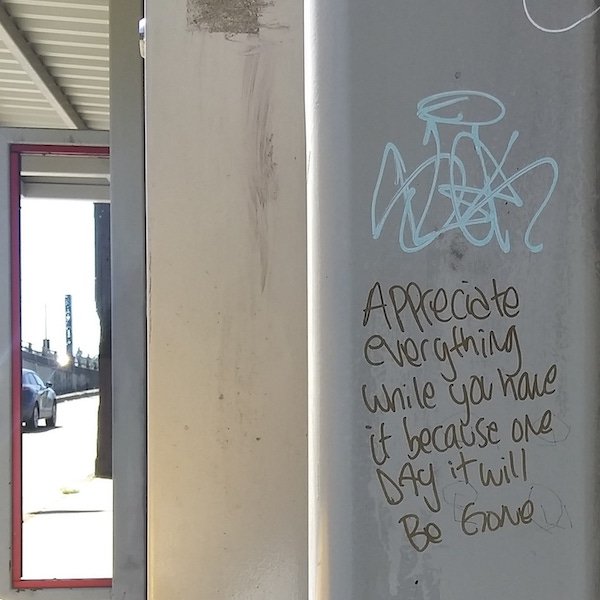 APPreciate
everything
while you have
it because one
DAy it will
Be Gone